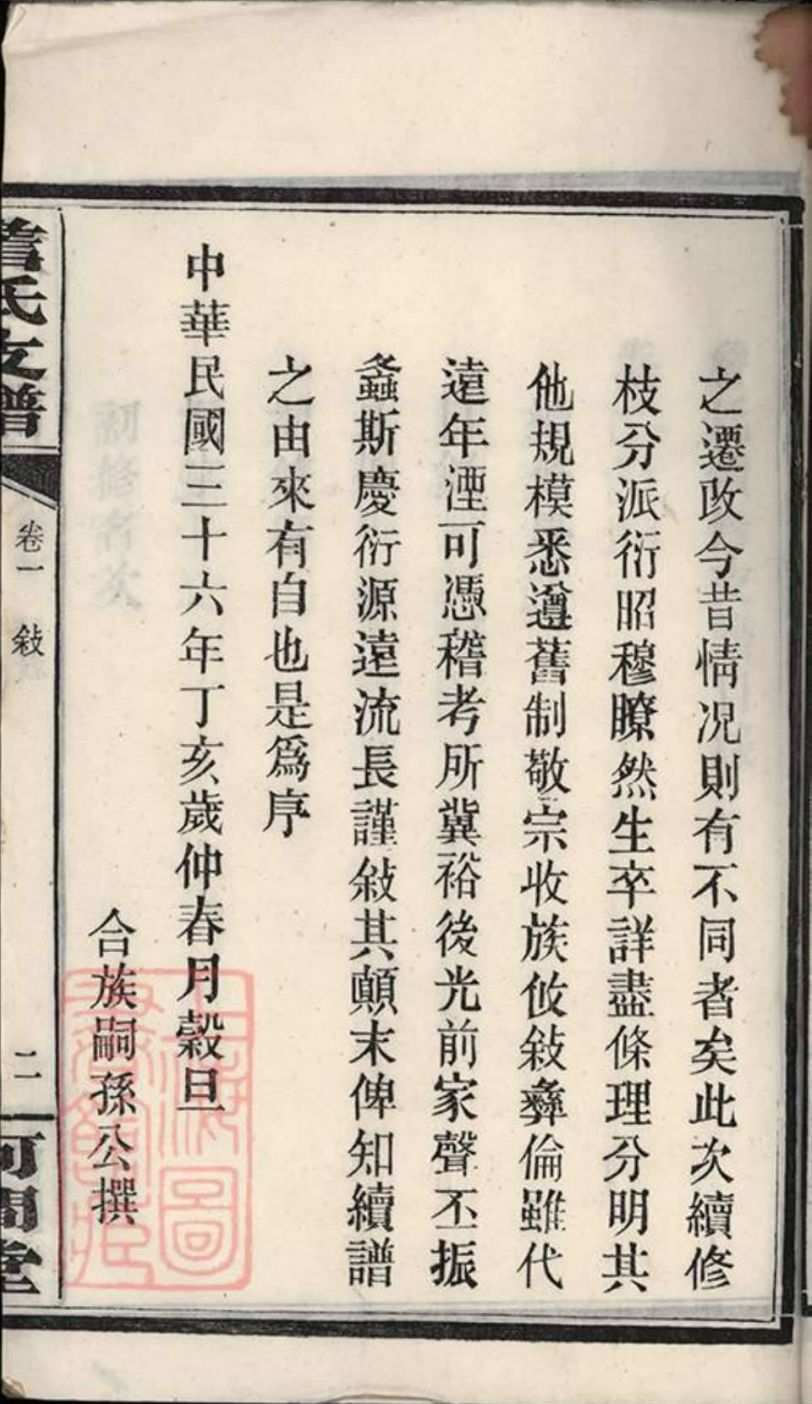 之遷改今昔情况則有不同者矣此次續修
枝分派衍昭穆瞭然生卒詳盡條理分明其
他規模悉遵舊制敬宗收族攸敍彝倫雖代
遠年湮可憑稽考所冀裕後光前家聲丕振
螽斯慶衍源遠流長謹敍其顛末俾知續譜
之由來有自也是爲序
中華民國三十六年丁亥歲仲春月穀旦
合族嗣孫公撰
詹氏支譜
卷一 敍
二
河間堂